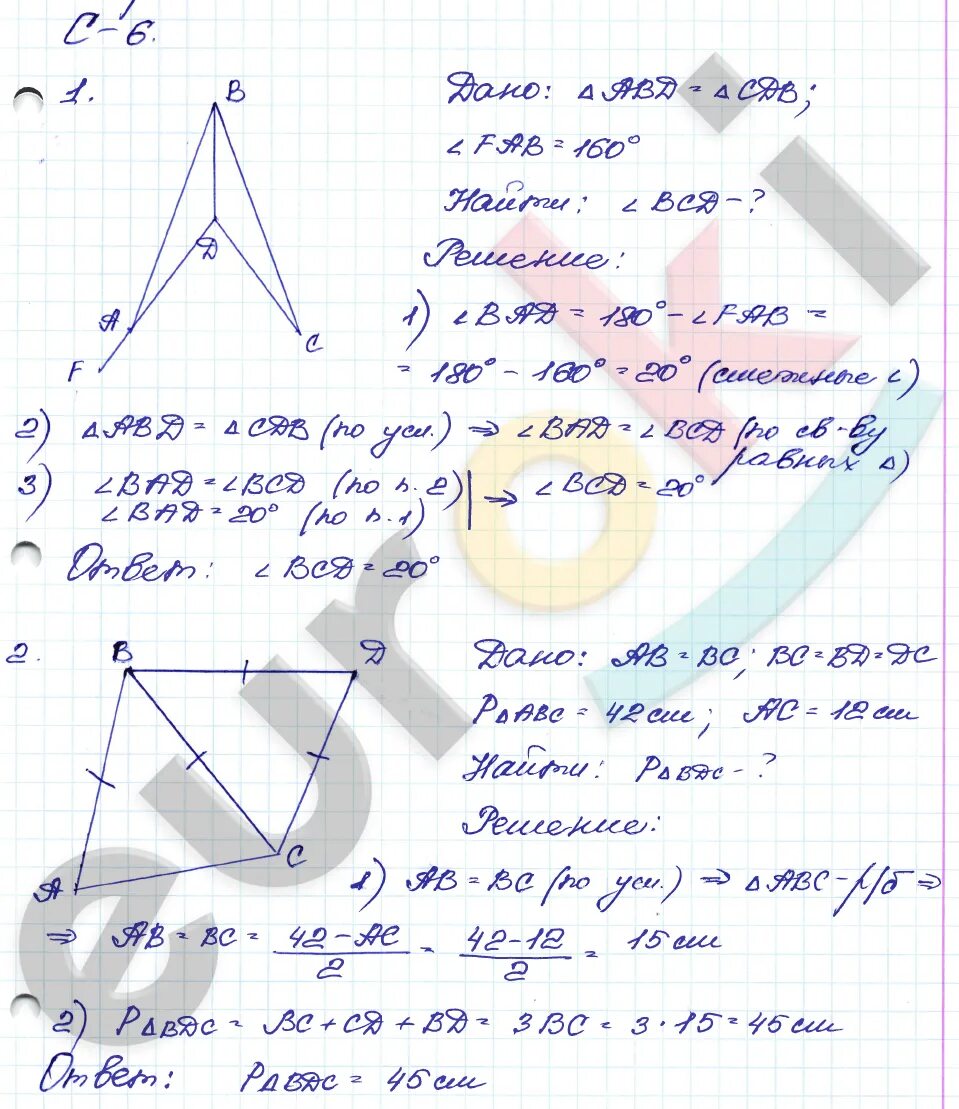 С-6.
1.
B
D
A
C
F
Дано: △ABD = △CDB;
∠FAB = 160°
Найти: ∠BCD - ?
Решение:
1) ∠BAD = 180° - ∠FAB =
= 180° - 160° = 20° (смежные ∠)
2) △ABD = △CDB (по усл.) ⇒ ∠BAD = ∠BCD (по св-ву
равных △)
3) ∠BAD = ∠BCD (по п. 2)
∠BAD = 20° (по п. 1)
⇒ ∠BCD = 20°
Ответ: ∠BCD = 20°
2.
B
D
C
A
Дано: AB = BC; BC = BD = DC
P△ABC = 42 см; AC = 12 см
Найти: P△BDC - ?
Решение:
1) AB = BC (по усл.) ⇒ △ABC - р/б ⇒
⇒ AB = BC = (42 - AC)/2 = (42 - 12)/2 = 15 см
2) P△BDC = BC + CD + BD = 3BC = 3 · 15 = 45 см
Ответ: P△BDC = 45 см
euroki